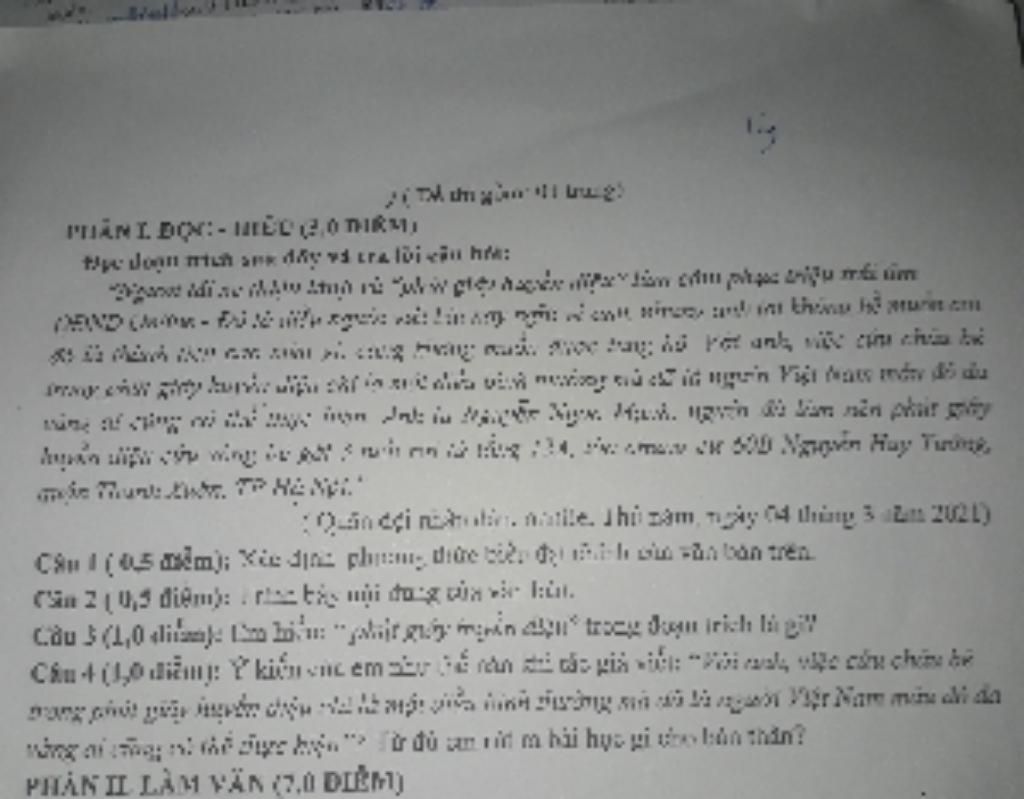 ( Đề thi gồm: 01 trang)
PHẦN I. ĐỌC - HIỂU (3,0 ĐIỂM)
Đọc đoạn trích sau đây và trả lời câu hỏi:
"Người lái xe và "phút giây huyền diệu" làm cảm phục triệu trái tim
QĐND Online - Đó là điều người viết bài này nghĩ về anh, nhưng anh lại không hề muốn
đó là thành tích Với anh, việc cứu cháu bé
trong phút giây huyền diệu chỉ là một điều bình thường mà đã là người Việt Nam máu đỏ da
vàng ai cũng có thể thực hiện. Anh là Nguyễn Ngọc Mạnh, người đã làm nên phút giây
huyền diệu cứu sống bé gái 3 tuổi rơi từ tầng 12A, tòa chung cư 60B Nguyễn Huy Tưởng,
quận Thanh Xuân, TP Hà Nội."
( Quân đội nhân dân. Online. Thứ năm, ngày 04 tháng 3 năm 2021)
Câu 1 ( 0,5 điểm): Xác định phương thức biểu đạt chính của văn bản trên.
Câu 2 ( 0,5 điểm): Trình bày nội dung của văn bản.
Câu 3 (1,0 điểm): Em hiểu: " phút giây huyền diệu" trong đoạn trích là gì?
Câu 4 (1,0 điểm): Ý kiến của em như thế nào khi tác giả viết: "Với anh, việc cứu cháu bé
trong phút giây huyền diệu chỉ là một điều bình thường mà đã là người Việt Nam máu đỏ da
vàng ai cũng có thể thực hiện"? Từ đó em rút ra bài học gì cho bản thân?
PHẦN II. LÀM VĂN (7,0 ĐIỂM)